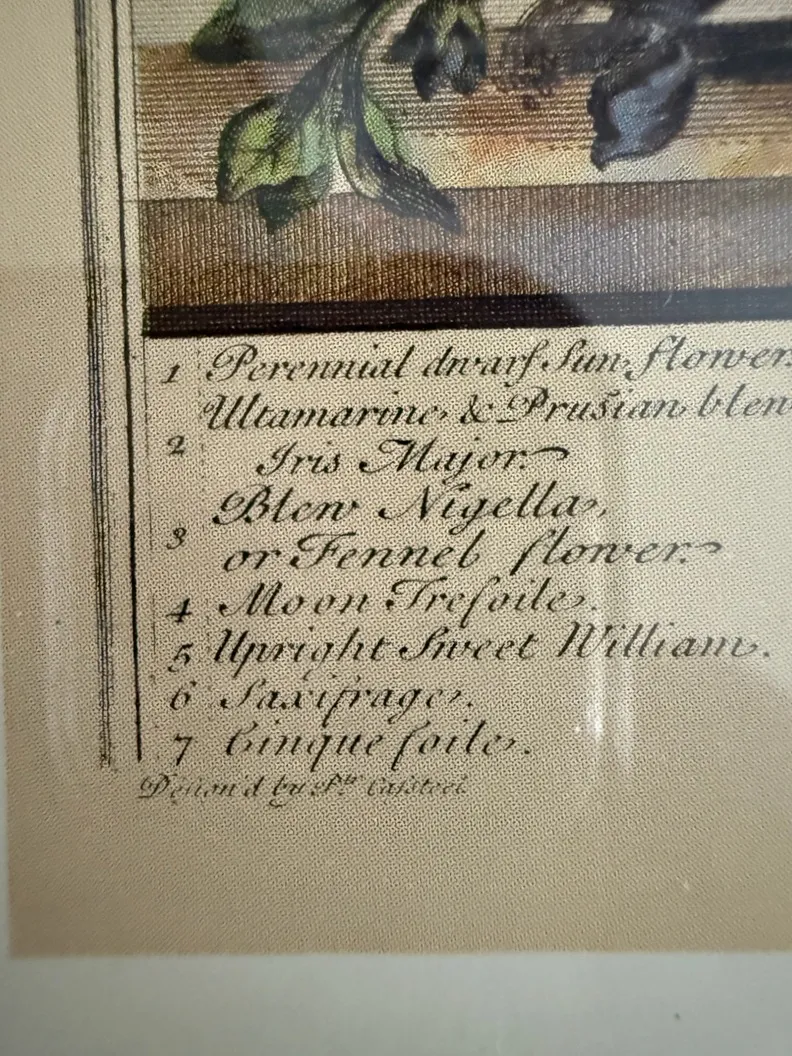 1 Perennial dwarf Sun flower.
Ultamarine & Prusian blew
2 Iris Major.
Blew Nigella,
3 or Fennel flower.
4 Moon Trefoile.
5 Upright Sweet William.
6 Saxifrage.
7 Cinque foile.
Design'd by Ptr Casteel